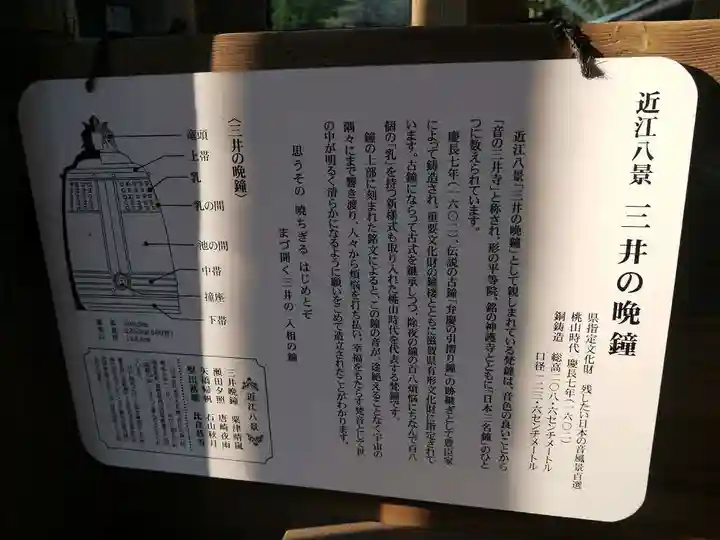 近江八景 三井の晩鐘
県指定文化財 残したい日本の音風景百選
桃山時代 慶長七年(一六〇二)
銅鋳造 総高二〇八・六センチメートル
口径一二三・六センチメートル
近江八景「三井の晩鐘」として親しまれている梵鐘は、音色の良いことから
「音の三井寺」と称され、形の平等院、銘の神護寺とともに「日本三名鐘」のひと
つに数えられています。
慶長七年(一六〇二)、伝説の古鐘「弁慶の引摺り鐘」の跡継ぎとして豊臣家
によって鋳造され、重要文化財の鐘楼とともに滋賀県有形文化財に指定されて
います。古鐘にならって古式を継承しつつ、除夜の鐘の百八煩悩にちなんで百八
個の「乳」を持つ新様式も取り入れた桃山時代を代表する梵鐘です。
鐘の上部に刻まれた銘文によると、この鐘の音が、途絶えることなく宇宙の
隅々にまで響き渡り、人々から煩悩を打ち払い、幸福をもたらす梵音として世
の中が明るく清らかになるように願いをこめて造立されたことがわかります。
思うその 暁ちぎる はじめとぞ
まづ聞く三井の 入相の鐘
〈三井の晩鐘〉
竜頭
上帯
乳
乳の間
池の間
中帯
撞座
下帯
近江八景
三井晩鐘 粟津晴嵐
瀬田夕照 唐崎夜雨
矢橋帰帆 石山秋月
堅田落雁 比良暮雪